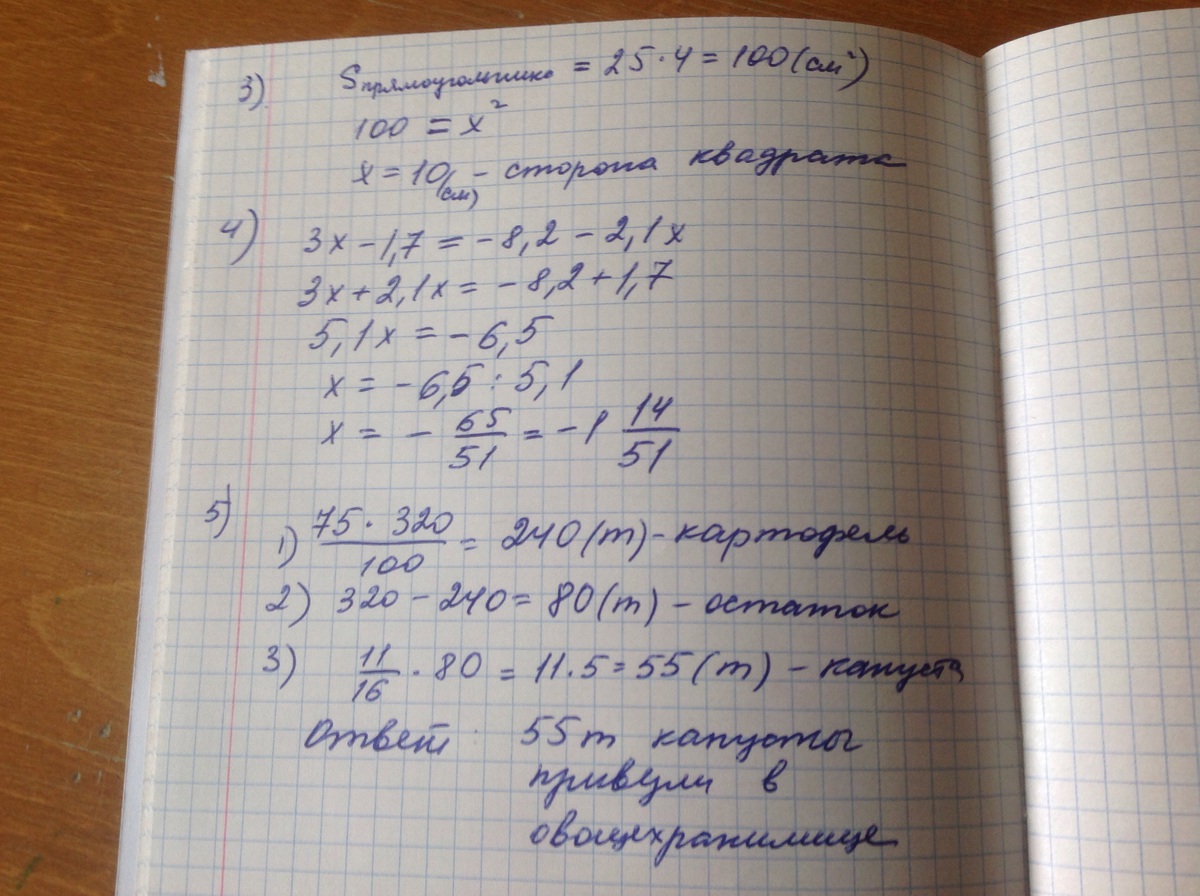 3) Sпрямоугольника = 25 · 4 = 100 (см²)
100 = x²
x = 10(см) - сторона квадрата
4) 3x - 1,7 = -8,2 - 2,1x
3x + 2,1x = -8,2 + 1,7
5,1x = -6,5
x = -6,5 : 5,1
x = - 65/51 = -1 14/51
5) 1) 75 · 320/100 = 240 (т) - картофель
2) 320 - 240 = 80 (т) - остаток
3) 11/16 · 80 = 11 · 5 = 55 (т) - капуста
Ответ : 55 т капусты
привезли в
овощехранилище